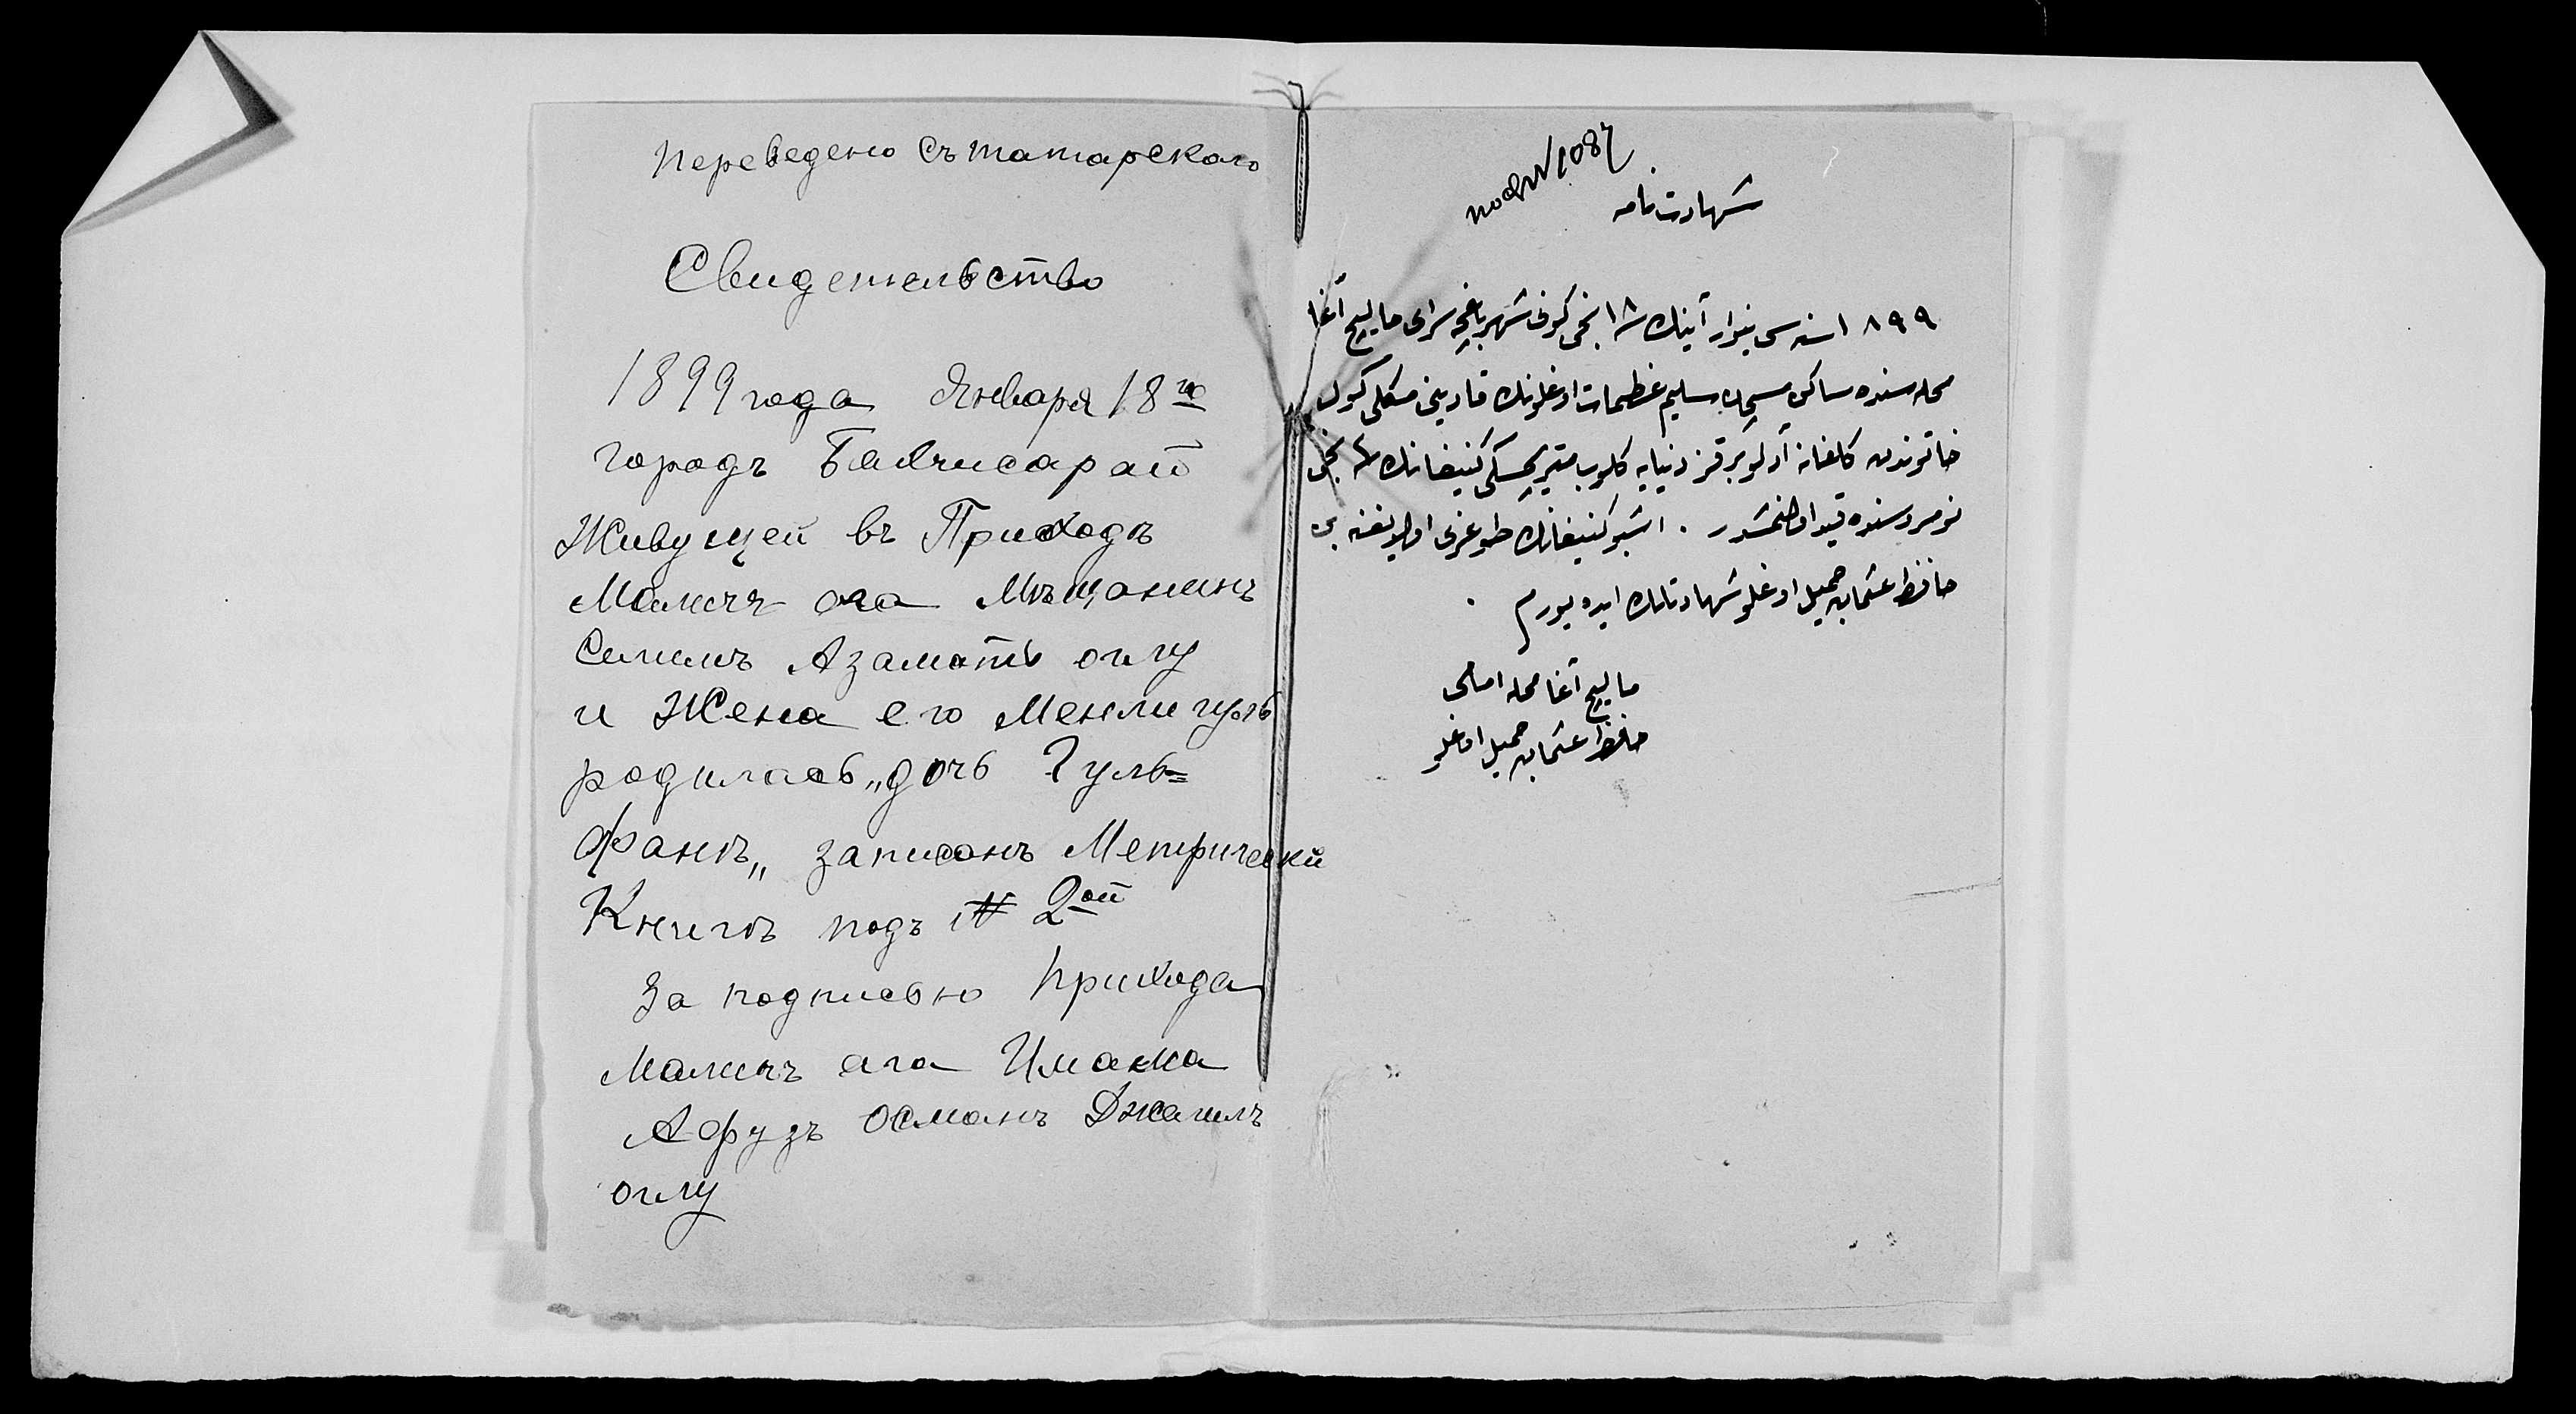 Переведено съ татарского
Свидетельство
1899 года Января 18го
городъ Бахчисарай
Живущей въ Приходъ
Маличъ ага Мѣщанинъ
Селимъ Азаматъ оглу
и Жена его Менли гуль
родилась „дочь Гуль=
фанъ„ записанъ Метрически
Книгъ подъ № 2ой
За подписью прихода
Маличъ ага Имама
Афузъ Османъ Джамилъ
оглу
شهادتنامه
١٨٩٩ سنه سی ینوار آینك ١٨ نجی كونی شهر باغچه سرای مالیچ آغا
محله سنده ساكن سلیم اوغلونك قادینی منكلی كول
خاتوندن آدلو بر قز دنیایه كلوب كنیغانك ٢ نجی
نومروسنده قید اولنمشدر . اشبو كنیغانك طوغری اولدیغنه بن
حافظ عثمان جمیل اوغلو شهادتلك ایده یورم .
مالیچ آغا محله امامی
حافظ عثمان جمیل اوغلو